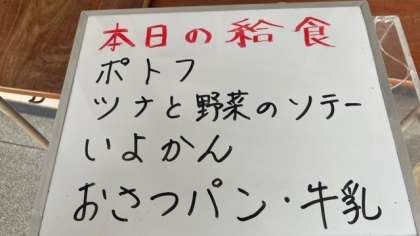 本日の給食
ポトフ
ツナと野菜のソテー
いよかん
おさつパン・牛乳